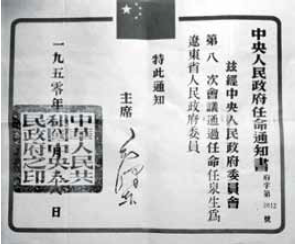 中央人民政府任命通知書
府字第 號
茲經中央人民政府委員會
第八次會議通過任命 泉生爲
遼東省人民政府委員
特此通知
主席
一九五零年 月 日
中華人民共
和國中央人
民政府之印